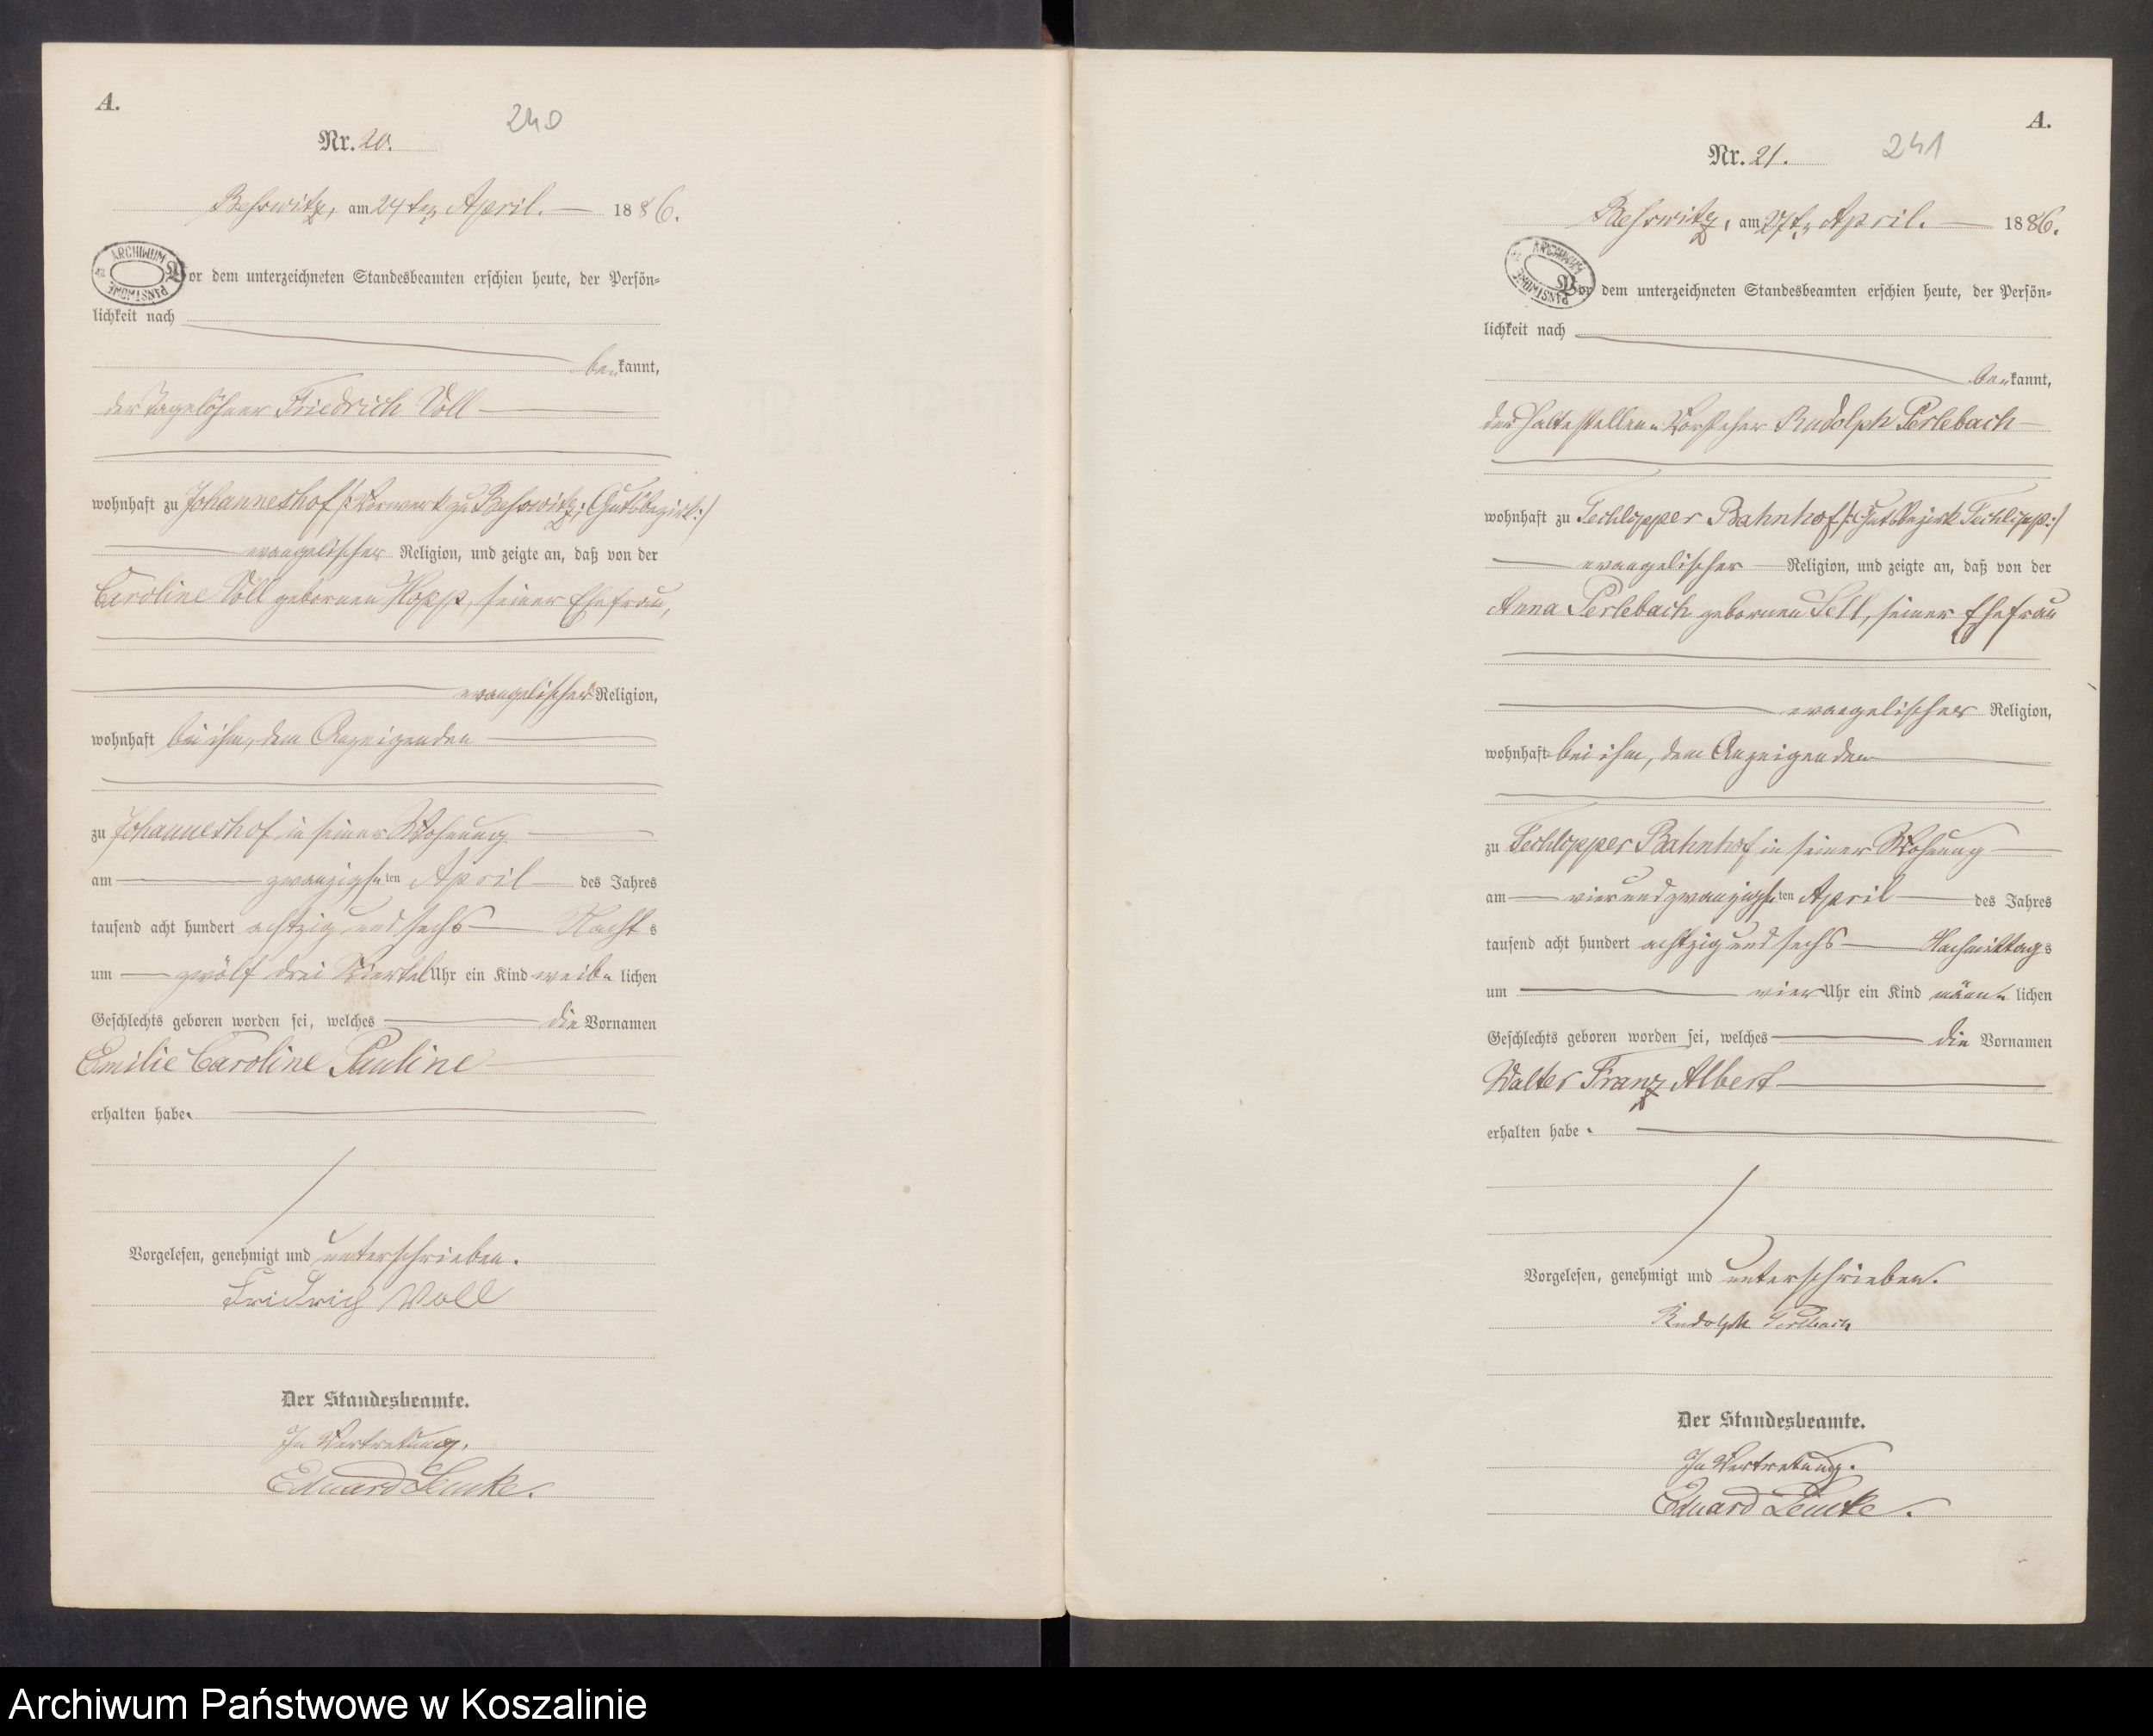 A.
240
Nr. 20.
Rehwitz, am 24ten April. 1886.
ARCHIWUM PAŃSTWOWE
Vor dem unterzeichneten Standesbeamten erschien heute, der Persön-
lichkeit nach
be kannt,
der Tagelöhner Friedrich Voll
wohnhaft zu Johanneshof /: Vorwerk zu Rehwitz, Gutsbezirk :/
evangelischer Religion, und zeigte an, daß von der
Caroline Voll gebornen Hopp, seiner Ehefrau,
evangelischer Religion,
wohnhaft bei ihm, dem Anzeigenden
zu Johanneshof in seiner Wohnung
am zwanzigsten April des Jahres
tausend acht hundert achtzig und sechs Nachts
um zwölf drei Viertel Uhr ein Kind weib- lichen
Geschlechts geboren worden sei, welches die Vornamen
Emilie Caroline Pauline
erhalten habe.
Vorgelesen, genehmigt und unterschrieben.
Fridrich Voll
Der Standesbeamte.
In Vertretung.
Eduard Lemke.
A.
241
Nr. 21.
Rehwitz, am 27ten April. 1886.
ARCHIWUM PAŃSTWOWE
Vor dem unterzeichneten Standesbeamten erschien heute, der Persön-
lichkeit nach
be kannt,
der Haltestellen-Vorsteher Rudolph Perlebach
wohnhaft zu Techlipper Bahnhof /: Gutsbezirk Techlipp :/
evangelischer Religion, und zeigte an, daß von der
Anna Perlebach gebornen Sell, seiner Ehefrau
evangelischer Religion,
wohnhaft bei ihm, dem Anzeigenden
zu Techlipper Bahnhof in seiner Wohnung
am vierundzwanzigsten April des Jahres
tausend acht hundert achtzig und sechs Nachmittags
um vier Uhr ein Kind männ- lichen
Geschlechts geboren worden sei, welches die Vornamen
Walter Franz Albert
erhalten habe.
Vorgelesen, genehmigt und unterschrieben.
Rudolph Perlebach
Der Standesbeamte.
In Vertretung.
Eduard Lemke.
Archiwum Państwowe w Koszalinie